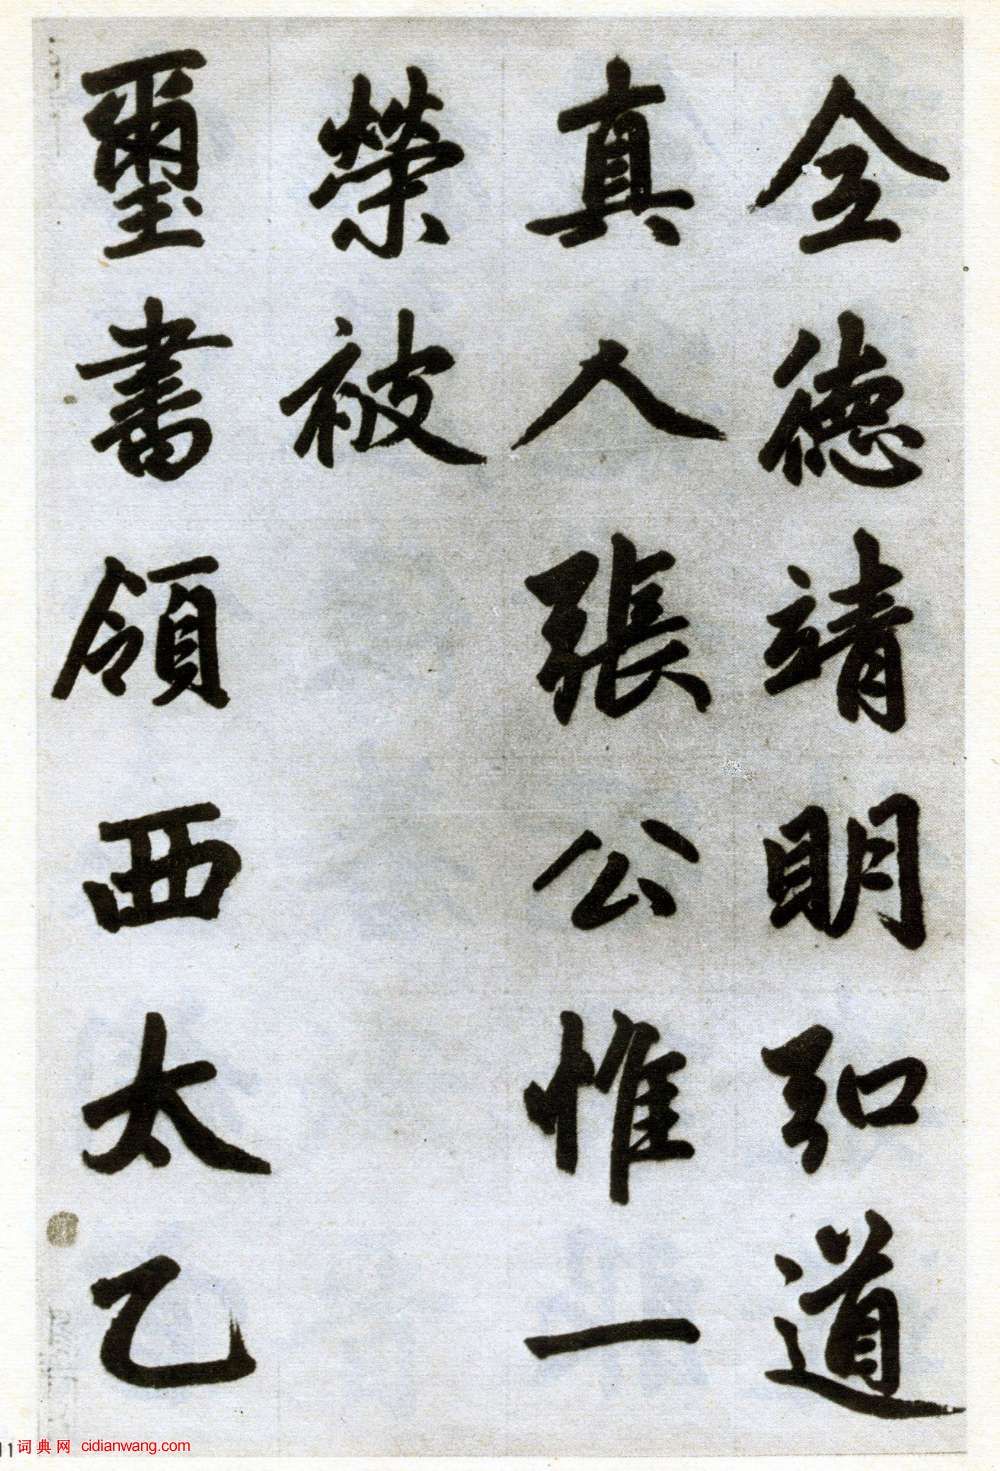 全德靖明弘道
真人張公惟一
榮被
璽書領西太乙
11 词典网 cidianwang.com